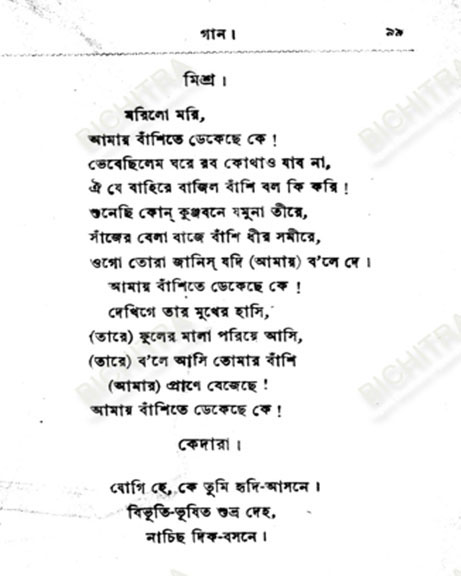 গান।
৯৯
মিশ্র।
মরিলো মরি,
আমায় বাঁশিতে ডেকেছে কে!
ভেবেছিলেম ঘরে রব কোথাও যাব না,
ঐ যে বাহিরে বাজিল বাঁশি বল কি করি!
শুনেছি কোন্ কুঞ্জবনে যমুনা তীরে,
সাঁজের বেলা বাজে বাঁশি ধীর সমীরে,
ওগো তোরা জানিস্ যদি (আমায়) ব'লে দে।
আমায় বাঁশিতে ডেকেছে কে!
দেখিগে তার মুখের হাসি,
(তারে) ফুলের মালা পরিয়ে আসি,
(তারে) ব'লে আসি তোমার বাঁশি
(আমার) প্রাণে বেজেছে!
আমায় বাঁশিতে ডেকেছে কে!
কেদারা।
যোগি হে, কে তুমি হৃদি-আসনে।
বিভূতি-ভূষিত শুভ্র দেহ,
নাচিছ দিক-বসনে।
BICHITRA
BICHITRA
BICHITRA
BICHITRA